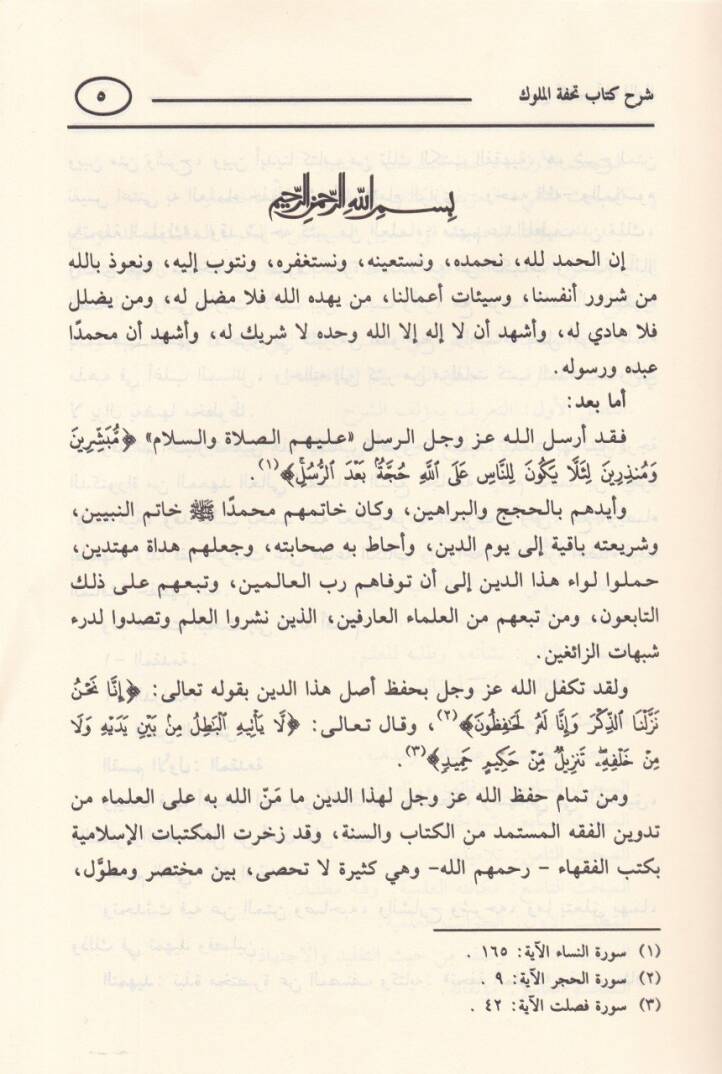 شرح كتاب تحفة الملوك
٥
بسم الله الرحمن الرحيم
إن الحمد لله، نحمده، ونستعينه، ونستغفره، ونتوب إليه، ونعوذ بالله
من شرور أنفسنا، وسيئات أعمالنا، من يهده الله فلا مضل له، ومن يضلل
فلا هادي له، وأشهد أن لا إله إلا الله وحده لا شريك له، وأشهد أن محمدًا
عبده ورسوله.
أما بعد:
فقد أرسل الله عز وجل الرسل «عليهم الصلاة والسلام» ﴿مُّبَشِّرِينَ
وَمُنذِرِينَ لِئَلَّا يَكُونَ لِلنَّاسِ عَلَى ٱللَّهِ حُجَّةٌۢ بَعْدَ ٱلرُّسُلِ﴾(١).
وأيدهم بالحجج والبراهين، وكان خاتمهم محمدًا ﷺ خاتم النبيين،
وشريعته باقية إلى يوم الدين، وأحاط به صحابته، وجعلهم هداة مهتدين،
حملوا لواء هذا الدين إلى أن توفاهم رب العالمين، وتبعهم على ذلك
التابعون، ومن تبعهم من العلماء العارفين، الذين نشروا العلم وتصدوا لدرء
شبهات الزائغين.
ولقد تكفل الله عز وجل بحفظ أصل هذا الدين بقوله تعالى: ﴿إِنَّا نَحْنُ
نَزَّلْنَا ٱلذِّكْرَ وَإِنَّا لَهُۥ لَحَٰفِظُونَ﴾(٢)، وقال تعالى: ﴿لَّا يَأْتِيهِ ٱلْبَٰطِلُ مِنۢ بَيْنِ يَدَيْهِ وَلَا
مِنْ خَلْفِهِۦ تَنزِيلٌ مِّنْ حَكِيمٍ حَمِيدٍ﴾(٣).
ومن تمام حفظ الله عز وجل لهذا الدين ما مَنّ الله به على العلماء من
تدوين الفقه المستمد من الكتاب والسنة، وقد زخرت المكتبات الإسلامية
بكتب الفقهاء - رحمهم الله- وهي كثيرة لا تحصى، بين مختصر ومطوَّل،
(١) سورة النساء الآية: ١٦٥ .
(٢) سورة الحجر الآية: ٩ .
(٣) سورة فصلت الآية: ٤٢ .